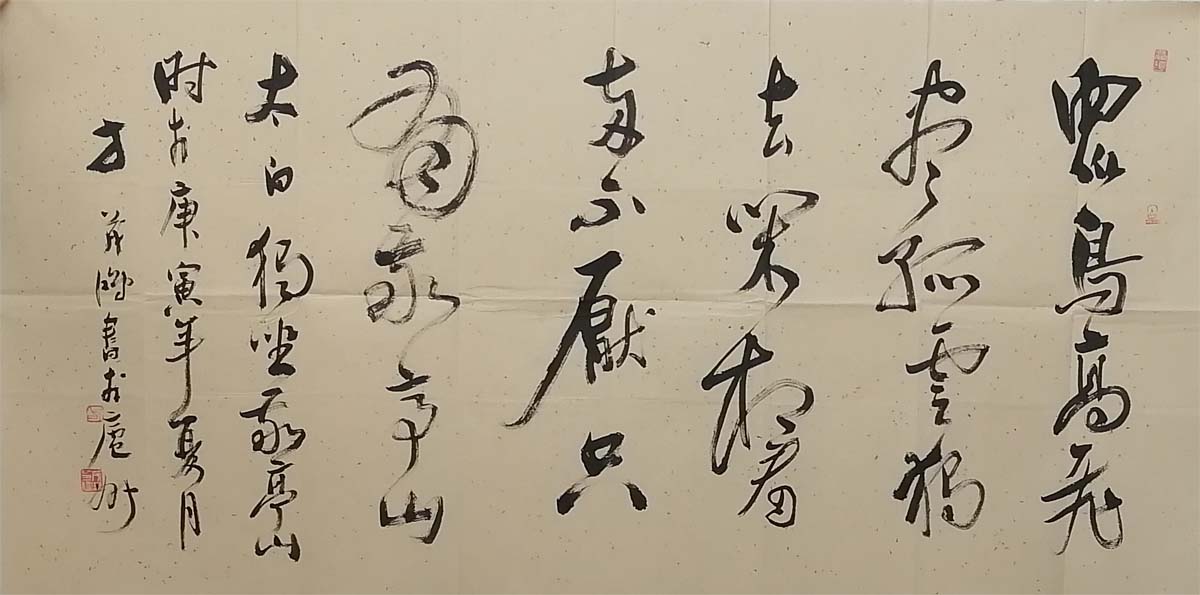 眾鳥高飛
盡孤雲獨
去閑相看
兩不厭只
有敬亭山
太白獨坐敬亭山
时於庚寅年夏月
方茂書於廬州